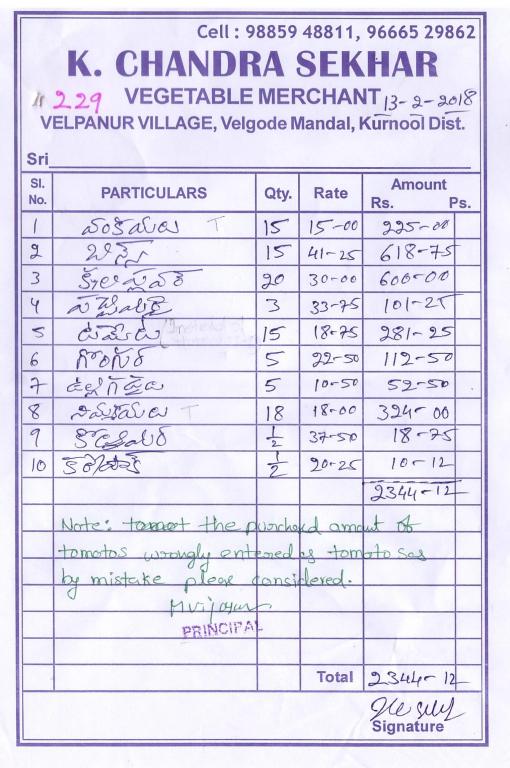 Cell : 98859 48811, 96665 29862
K. CHANDRA SEKHAR
229 VEGETABLE MERCHANT 13-2-2018
VELPANUR VILLAGE, Velgode Mandal, Kurnool Dist.
Sri
Sl. No. PARTICULARS Qty. Rate Amount Rs. Ps.
1 వంకాయలు T 15 15-00 225-00
2 బీన్స్ 15 41-25 618-75
3 20 30-00 600-00
4 3 33-75 101-25
5 టమోటో 15 18-75 281-25
6 గోంగూర 5 22-50 112-50
7 ఉల్లిగడ్డలు 5 10-50 52-50
8 నిమ్మకాయలు T 18 18-00 324-00
9 1/2 37-50 18-75
10 1/2 20-25 10-12
2344-12
Note: the purchased amount of
tomotos wrongly entered as tomoto Sas
by mistake please considered.
PRINCIPAL
Total 2344-12
Signature